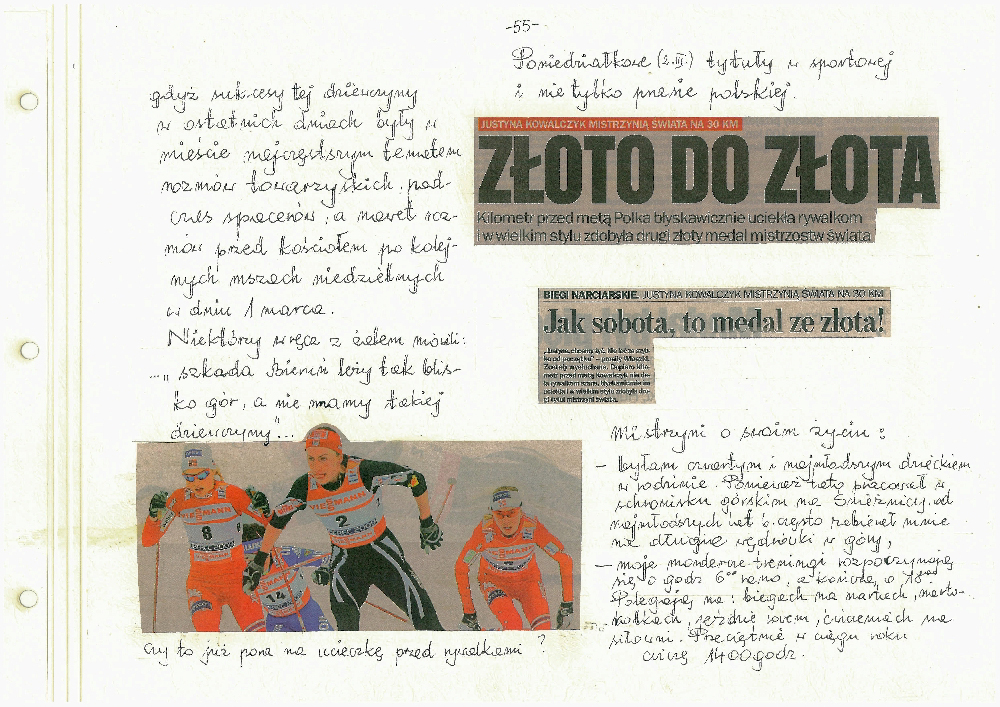 -55-
gdyż sukcesy tej dziewczyny
w ostatnich dniach były w
mieście najczęstszym tematem
rozmów towarzyskich, pod-
czas spacerów, a nawet roz-
mów przed kościołem po kolej-
nych mszach niedzielnych
w dniu 1 marca.
Niektórzy wręcz z żalem mówili:
...„szkoda Bieruń leży tak blis-
ko gór, a nie mamy takiej
dziewczyny"...
VIESSMANN
8
VIESSMANN
2
14
czy to już pora na ucieczkę przed rywalkami ?
Poniedziałkowe (2.III.) tytuły w sportowej
i nie tylko prasie polskiej.
JUSTYNA KOWALCZYK MISTRZYNIĄ ŚWIATA NA 30 KM
ZŁOTO DO ZŁOTA
Kilometr przed metą Polka błyskawicznie uciekła rywalkom
i w wielkim stylu zdobyła drugi złoty medal mistrzostw świata
BIEGI NARCIARSKIE. JUSTYNA KOWALCZYK MISTRZYNIĄ ŚWIATA NA 30 KM
Jak sobota, to medal ze złota!
Mistrzyni o swoim życiu :
- byłam czwartym i najmłodszym dzieckiem
w rodzinie. Ponieważ tato pracował w
schronisku górskim na Śnieżnicy, od
najmłodszych lat często zabierał mnie
na długie wędrówki w góry,
- moje mordercze treningi rozpoczynają
się o godz 6⁰⁰ rano, a kończą o 18⁰⁰
Polegają na : biegach na nartach, narto-
rolkach, jeździe rowem, ćwiczeniach na
siłowni. Przeciętnie w ciągu roku
ćwiczę 1400 godz.